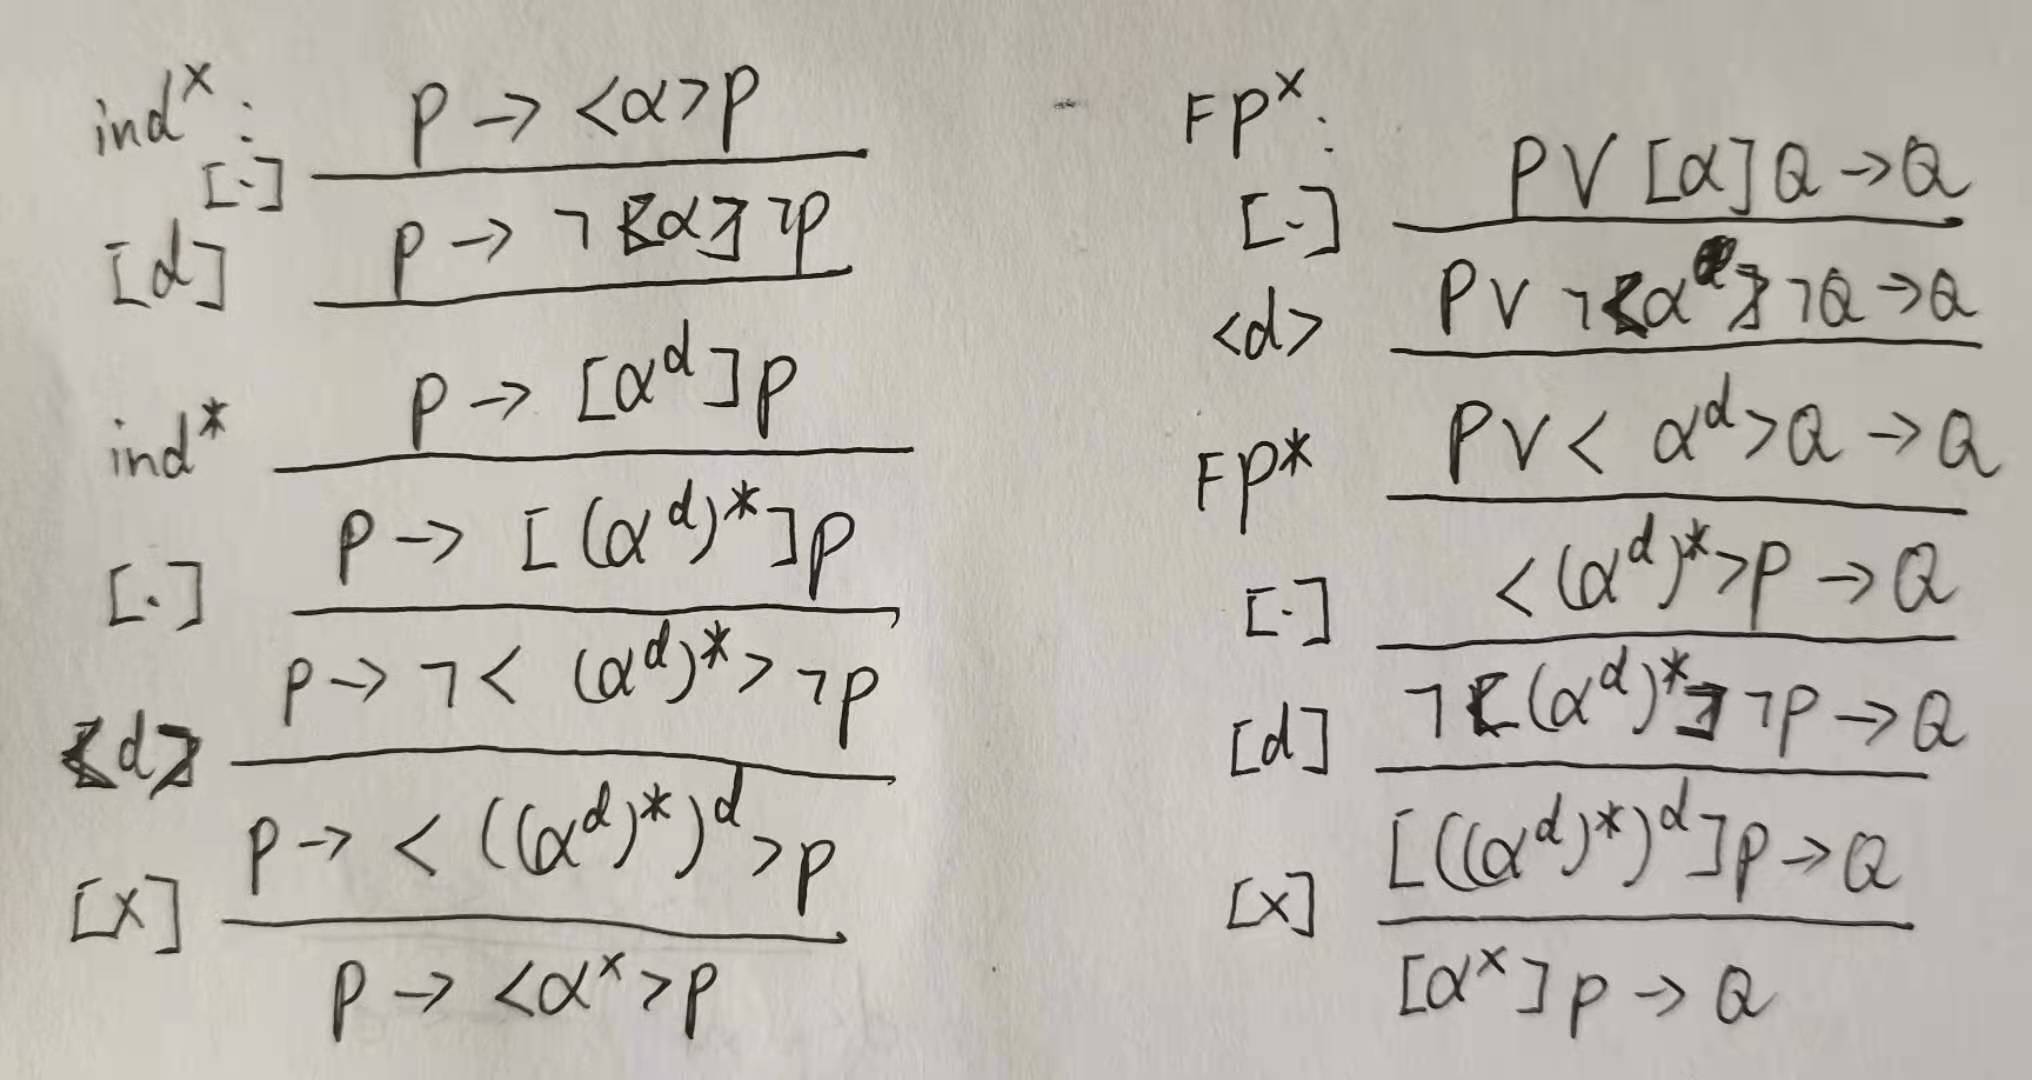 ind^x :
P → <α>P
[·]
P → ¬[α]¬P
[d]
P → [α^d]P
ind*
P → [(α^d)*]P
[·]
P → ¬<(α^d)*>¬P
<d>
P → <((α^d)*)^d>P
[x]
P → <α^x>P
FP^x :
P∨[α]Q → Q
[·]
P∨¬<α>¬Q → Q
<d>
P∨<α^d>Q → Q
FP*
<(α^d)*>P → Q
[·]
¬[(α^d)*]¬P → Q
[d]
[((α^d)*)^d]P → Q
[x]
[α^x]P → Q